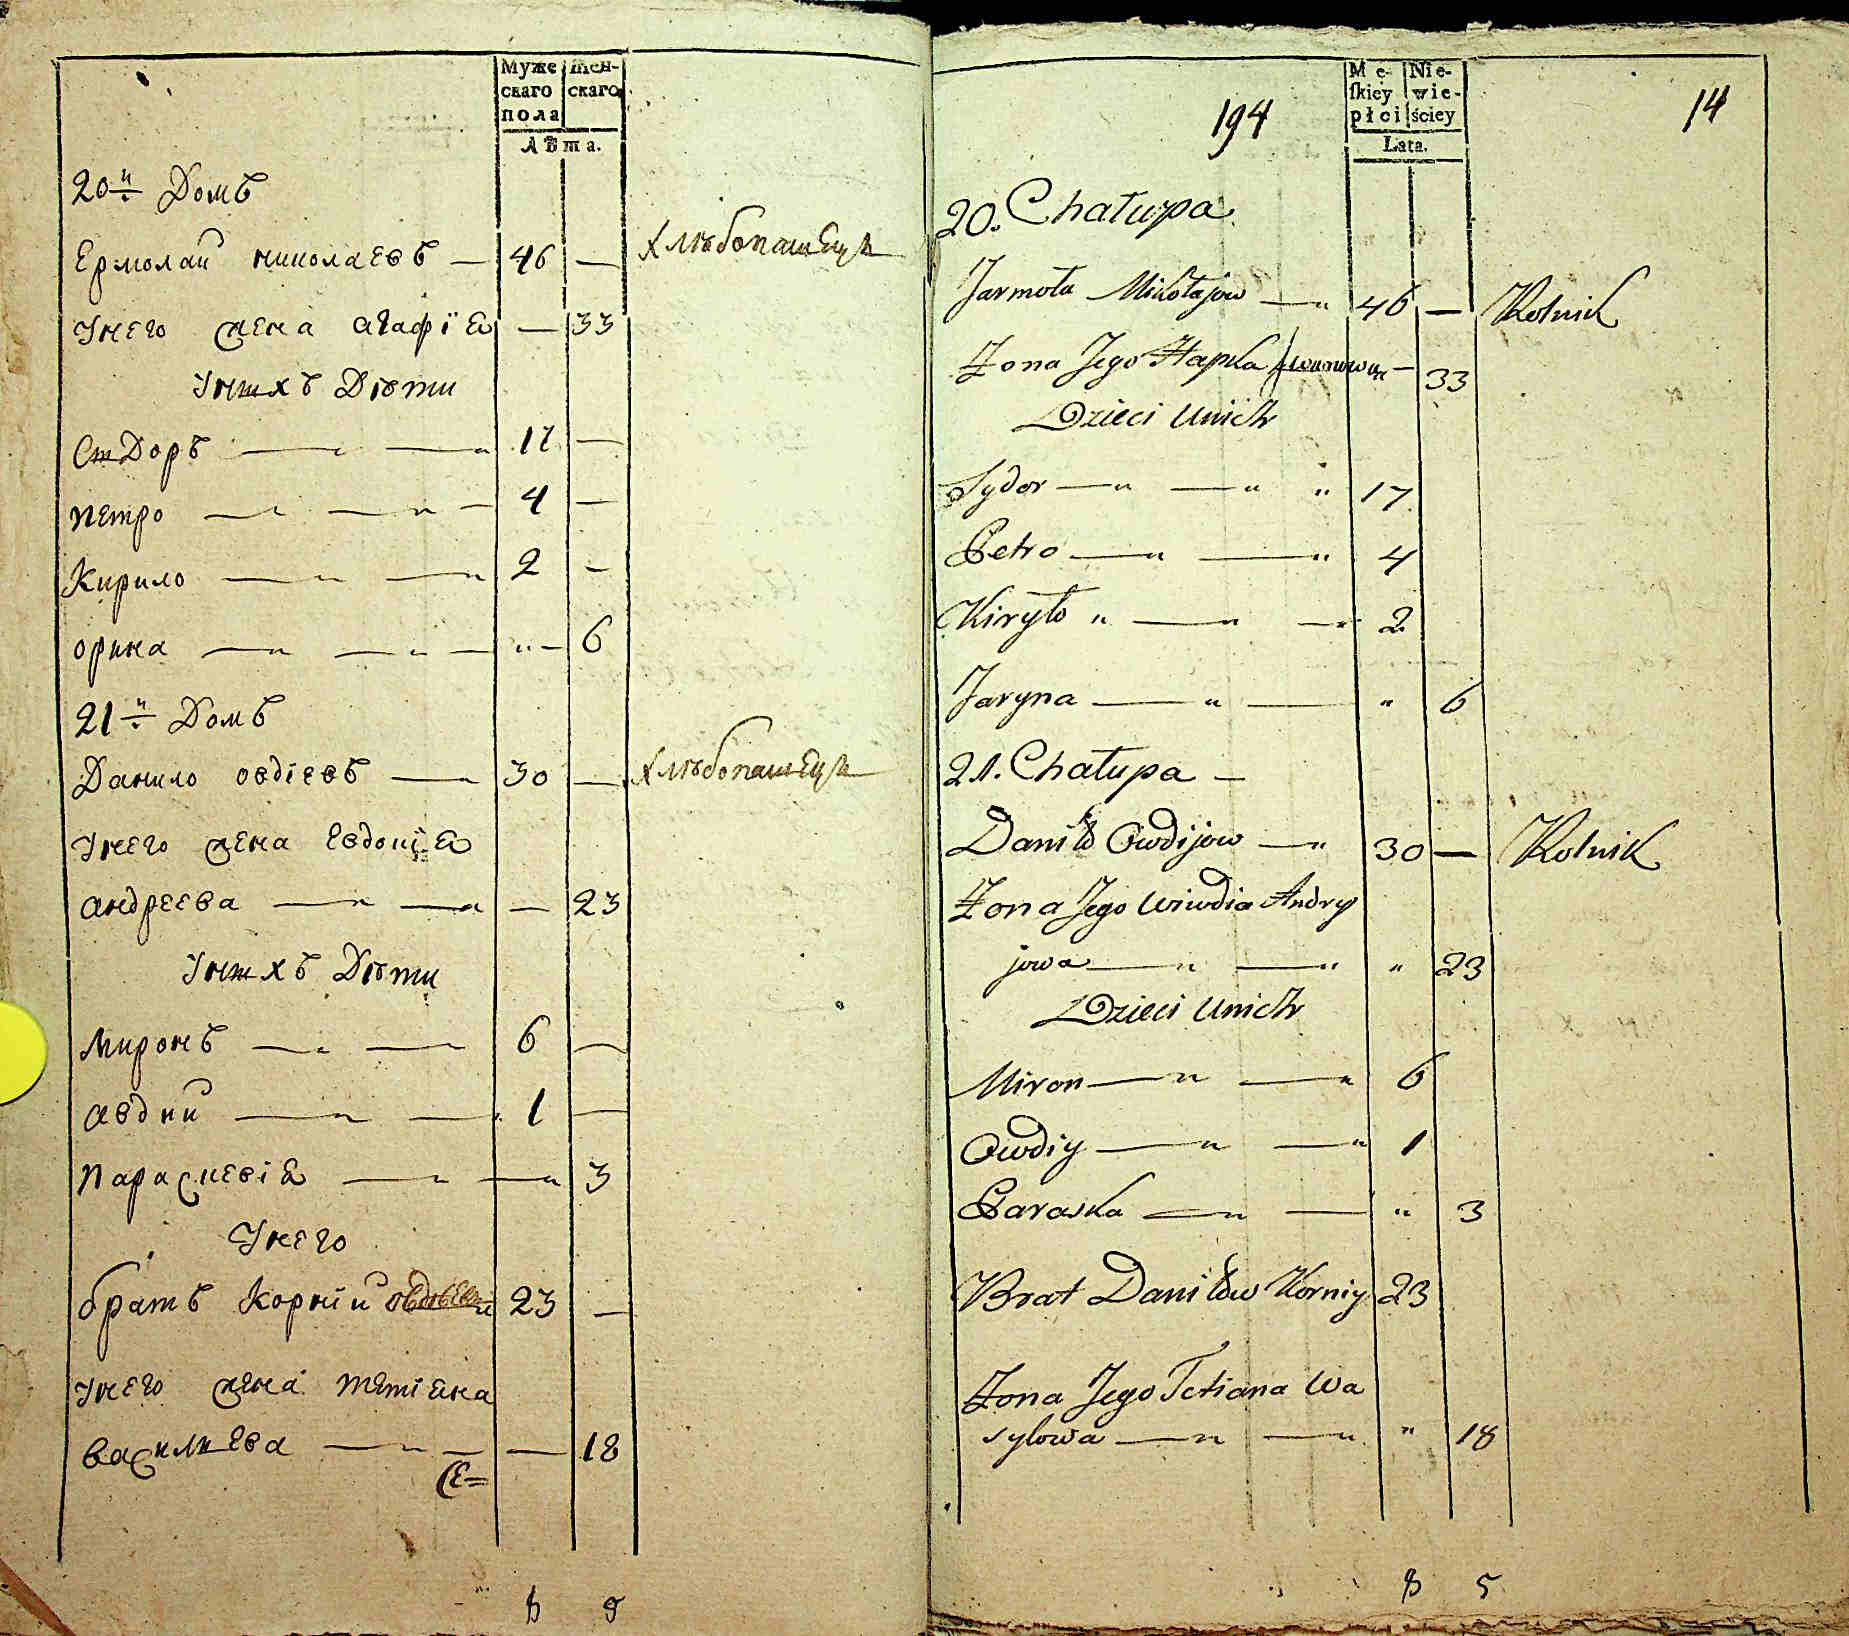 Муже
скаго
пола
Жен-
скаго
Лѣта.
20й Домъ
Ермолай николаевъ — 46 — хлѣбопашецъ
Унего жена агафія — 33
Унихъ Дѣти
Сидоръ — 17 —
петро — 4 —
Кирило — 2 —
орина — 6
21й Домъ
Данило овдіевъ — 30 — хлѣбопашецъ
Унего жена Евдокія
андреева — 23
Унихъ Дѣти
Миронъ — 6 —
авдий — 1 —
параскевія — 3
Унего
братъ Корній 23 —
Унего жена тетіана
василиева — 18
8 5
194
14
Mę-
skiey
płci
Nie-
wie-
ściey
Lata.
20. Chałupa
Jarmoła Mikołajow — 46 — Rolnik
Żona Jego Hapka Iwanowna — 33
Dzieci Unich
Sydor — 17
Petro — 4
Kiryło — 2
Jaryna — 6
21. Chałupa —
Daniło Owdijow — 30 — Rolnik
Żona Jego Wiwdia Andry
jowa — 23
Dzieci Unich
Miron — 6
Owdiy — 1
Paraska — 3
Brat Daniłow Korniy 23
Żona Jego Tetiana Wa
sylowa — 18
8 5